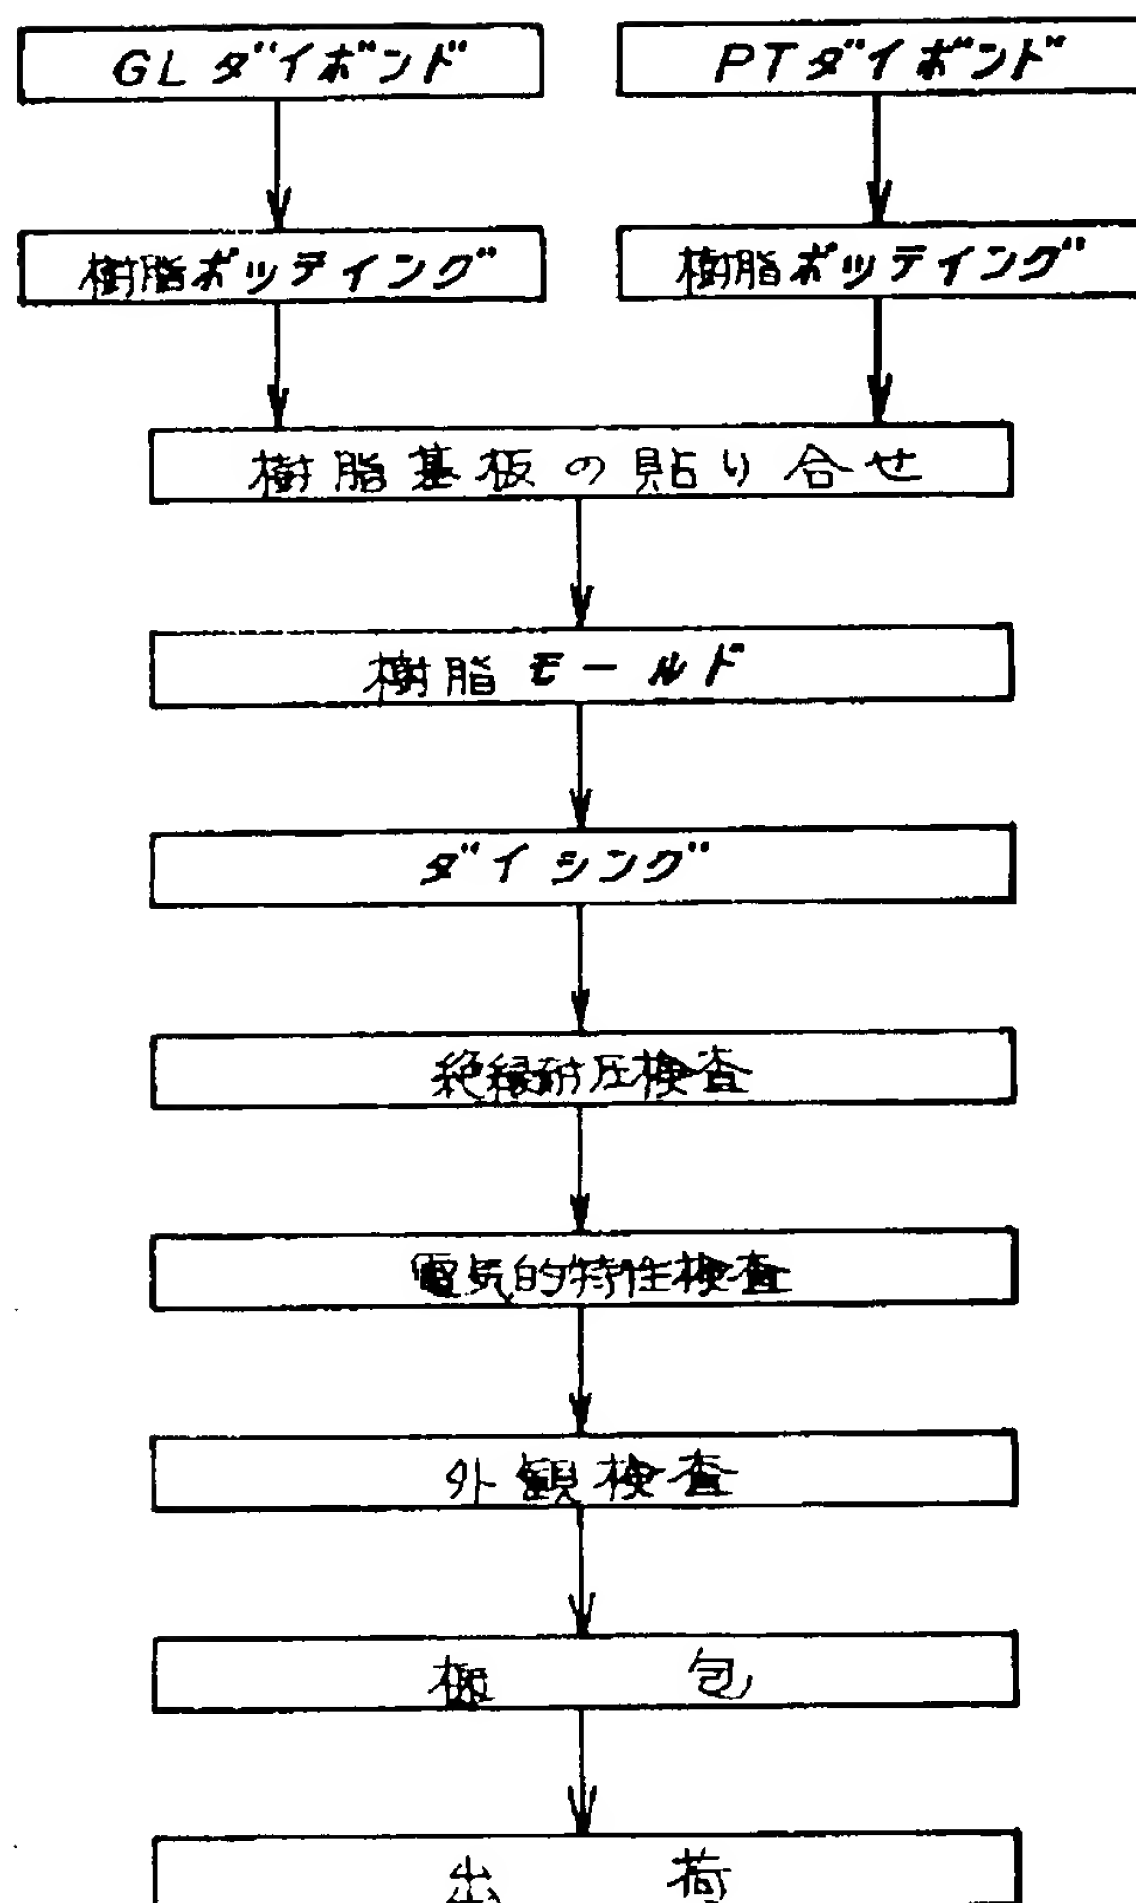 GLダイボンド
PTダイボンド
樹脂ポッティング
樹脂ポッティング
樹脂基板の貼り合せ
樹脂モールド
ダイシング
絶縁耐圧検査
電気的特性検査
外観検査
梱包
出荷